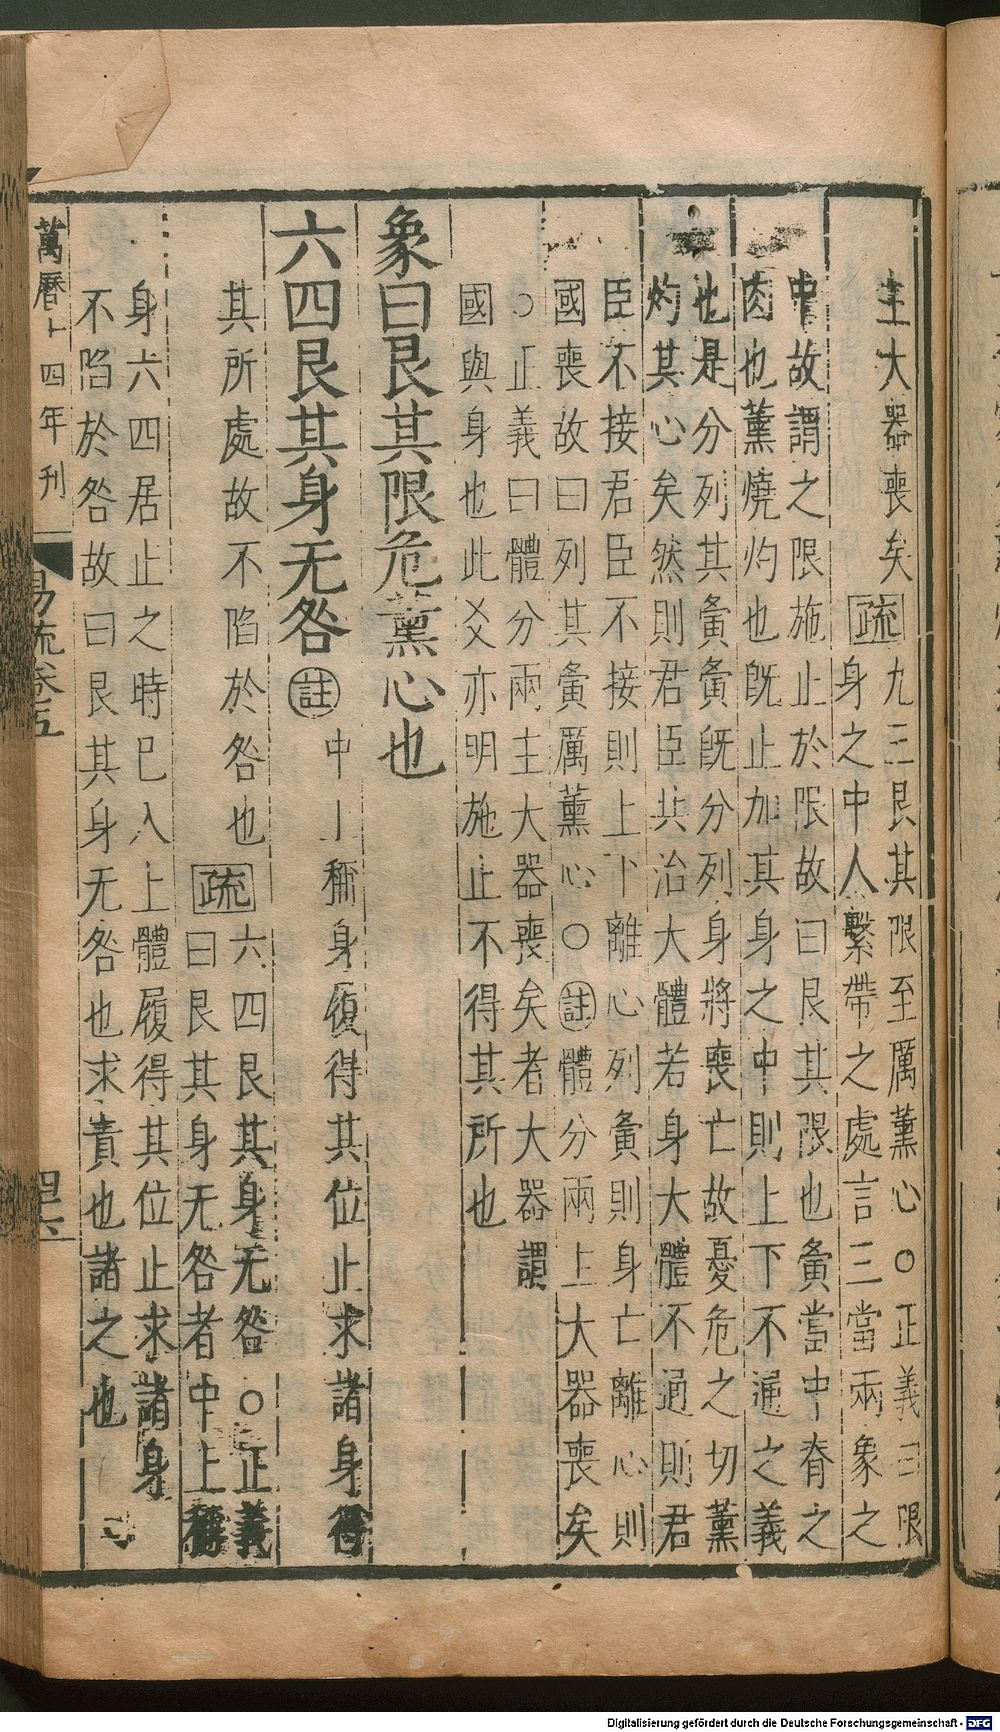 主大器喪矣疏九三艮其限至厲薰心○正義曰限
身之中人繫帶之處言三當兩象之
中故謂之限施止於限故曰艮其限也夤當中脊之
肉也薰燒灼也既止加其身之中則上下不通之義
也是分列其夤夤既分列身將喪亡故憂危之切薰
灼其心矣然則君臣共治大體若身大體不通則君
臣不接君臣不接則上下離心列夤則身亡離心則
國喪故曰列其夤厲薰心○註體分兩主大器喪矣
○正義曰體分兩主大器喪矣者大器謂
國與身也此爻亦明施止不得其所也
象曰艮其限危薰心也
六四艮其身无咎註中上稱身履得其位止求諸身得
其所處故不陷於咎也疏六四艮其身无咎○正義
曰艮其身无咎者中上稱
身六四居止之時已入上體履得其位止求諸身
不陷於咎故曰艮其身无咎也求責也諸之也
萬曆十四年刊
易疏卷五
Digitalisierung gefördert durch die Deutsche Forschungsgemeinschaft - DFG